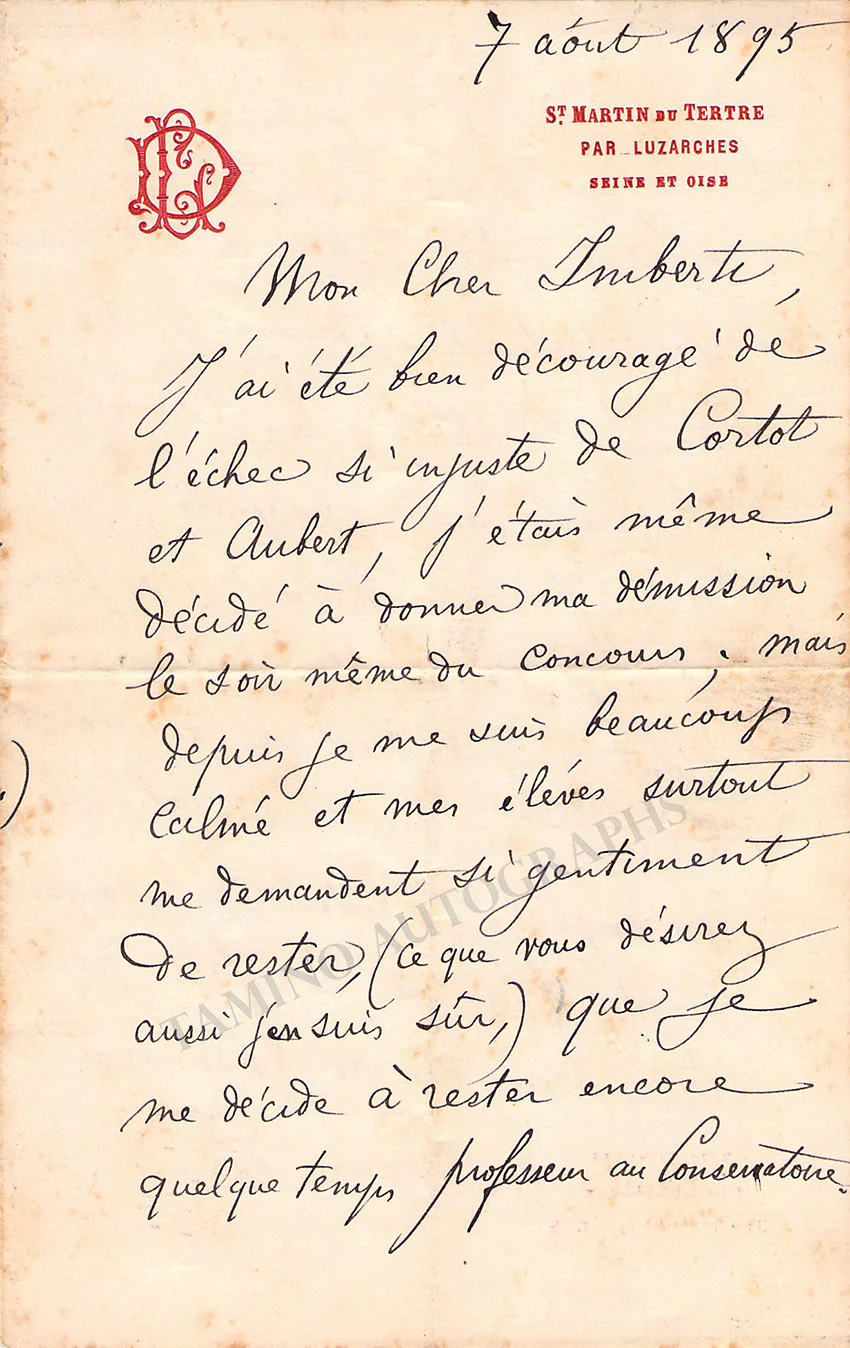 7 août 1895
ST MARTIN DU TERTRE
PAR LUZARCHES
SEINE ET OISE
Mon Cher Imbert,
J'ai été bien découragé de
l'échec si injuste de Cortot
et Aubert, j'étais même
décidé à donner ma démission
le soir même du concours ; mais
depuis je me suis beaucoup
calmé et mes élèves surtout
me demandent si gentiment
de rester, (ce que vous désirez
aussi j'en suis sûr,) que je
me décide à rester encore
quelque temps professeur au Conservatoire.
TAMINO AUTOGRAPHS